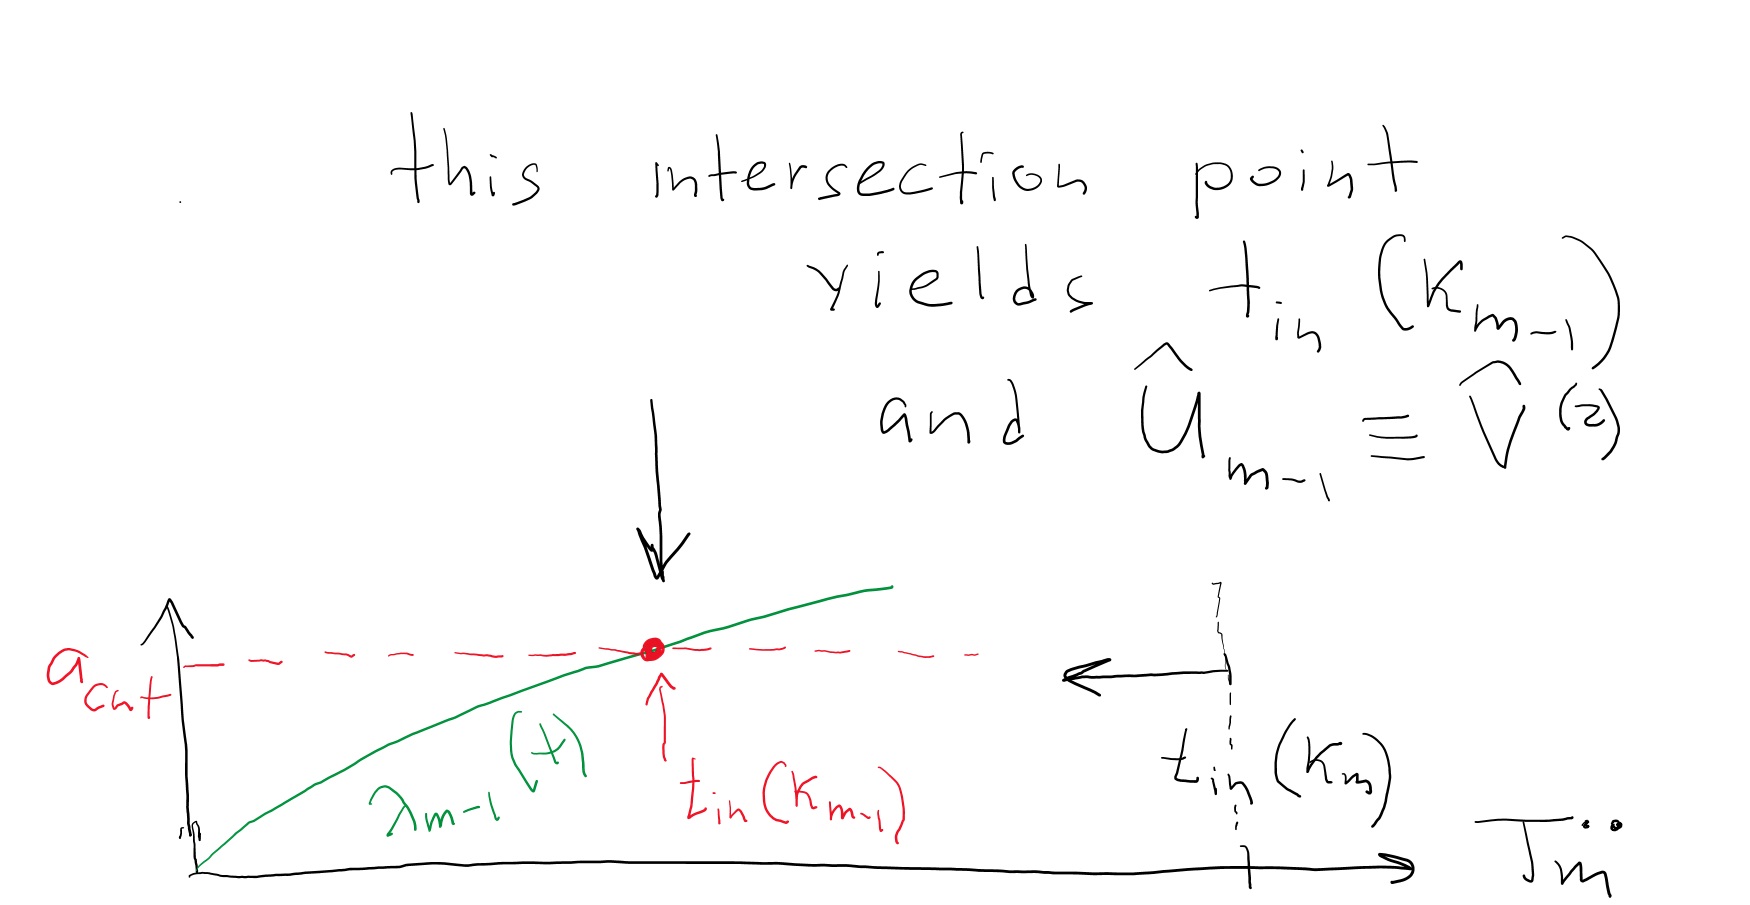 this intersection point
yields t_in (K_m-1)
and Û_m-1 ≡ V̂^(2)
a_cut
λ_m-1 (t)
t_in (K_m-1)
t_in (K_m)